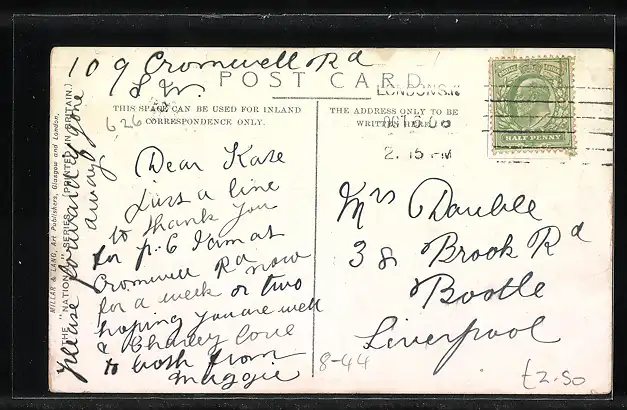 109 Cromwell Rd
S.W.
POST CARD
THIS SPACE CAN BE USED FOR INLAND
CORRESPONDENCE ONLY.
THE ADDRESS ONLY TO BE
WRITTEN HERE.
626
LONDON S.W
OC 16 06
2.15 PM
HALF PENNY
Dear Kate
Just a line
to thank you
for p.c I am at
Cromwell Rd now
for a week or two
hoping you are well
& Charley love
to both from
Maggie
Mrs Daubll
38 Brook Rd
Bootle
Liverpool
please forward if gone
away
MILLAR & LANG, Art Publishers, Glasgow and London.
THE "NATIONAL" SERIES. (PRINTED IN BRITAIN.)
8-44
£2.50